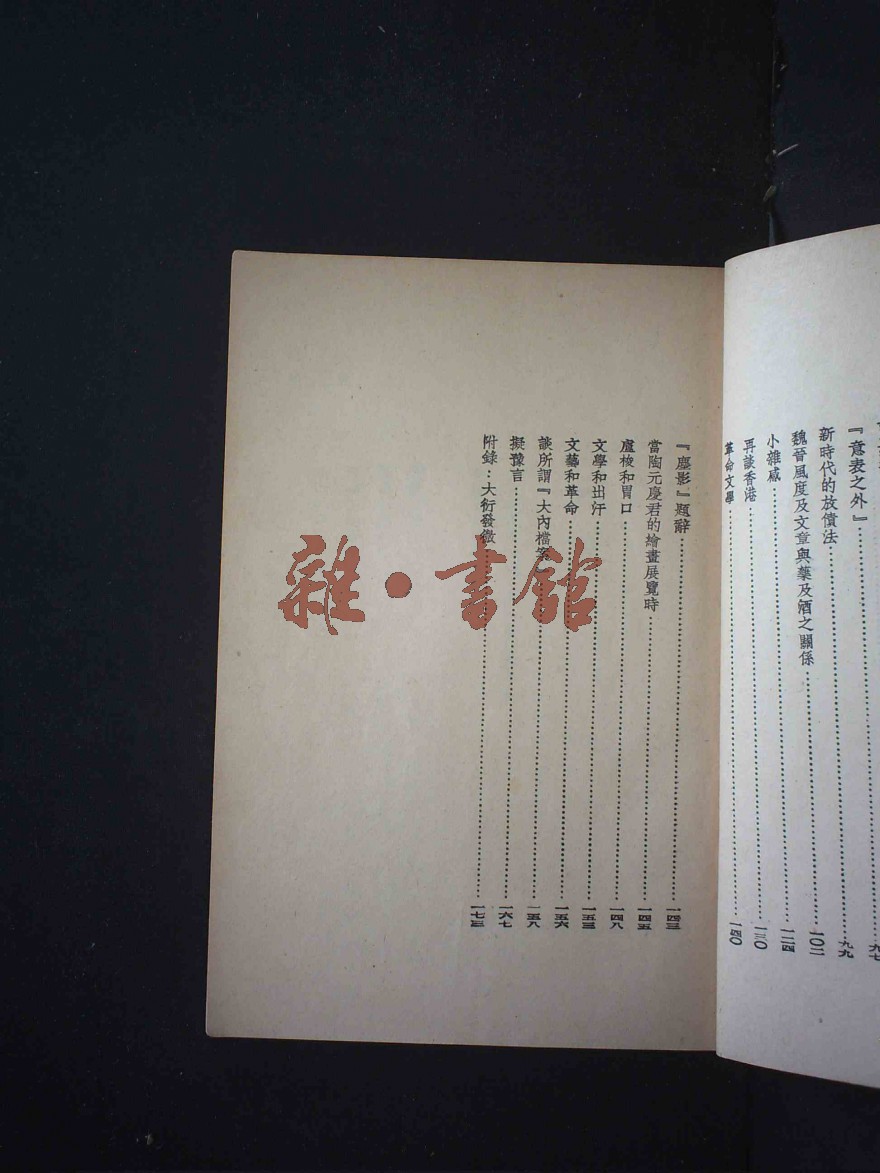 『意表之外』……九七
新時代的放債法……九九
魏晉風度及文章與藥及酒之關係……一〇二
小雜感……一二四
再談香港……一三〇
革命文學……一四〇
『塵影』題辭……一四三
當陶元慶君的繪畫展覽時……一四五
盧梭和胃口……一四八
文學和出汗……一五三
文藝和革命……一五六
談所謂『大內檔案』……一五八
擬豫言……一六七
附錄：大衍發微……一七三
雜·書館